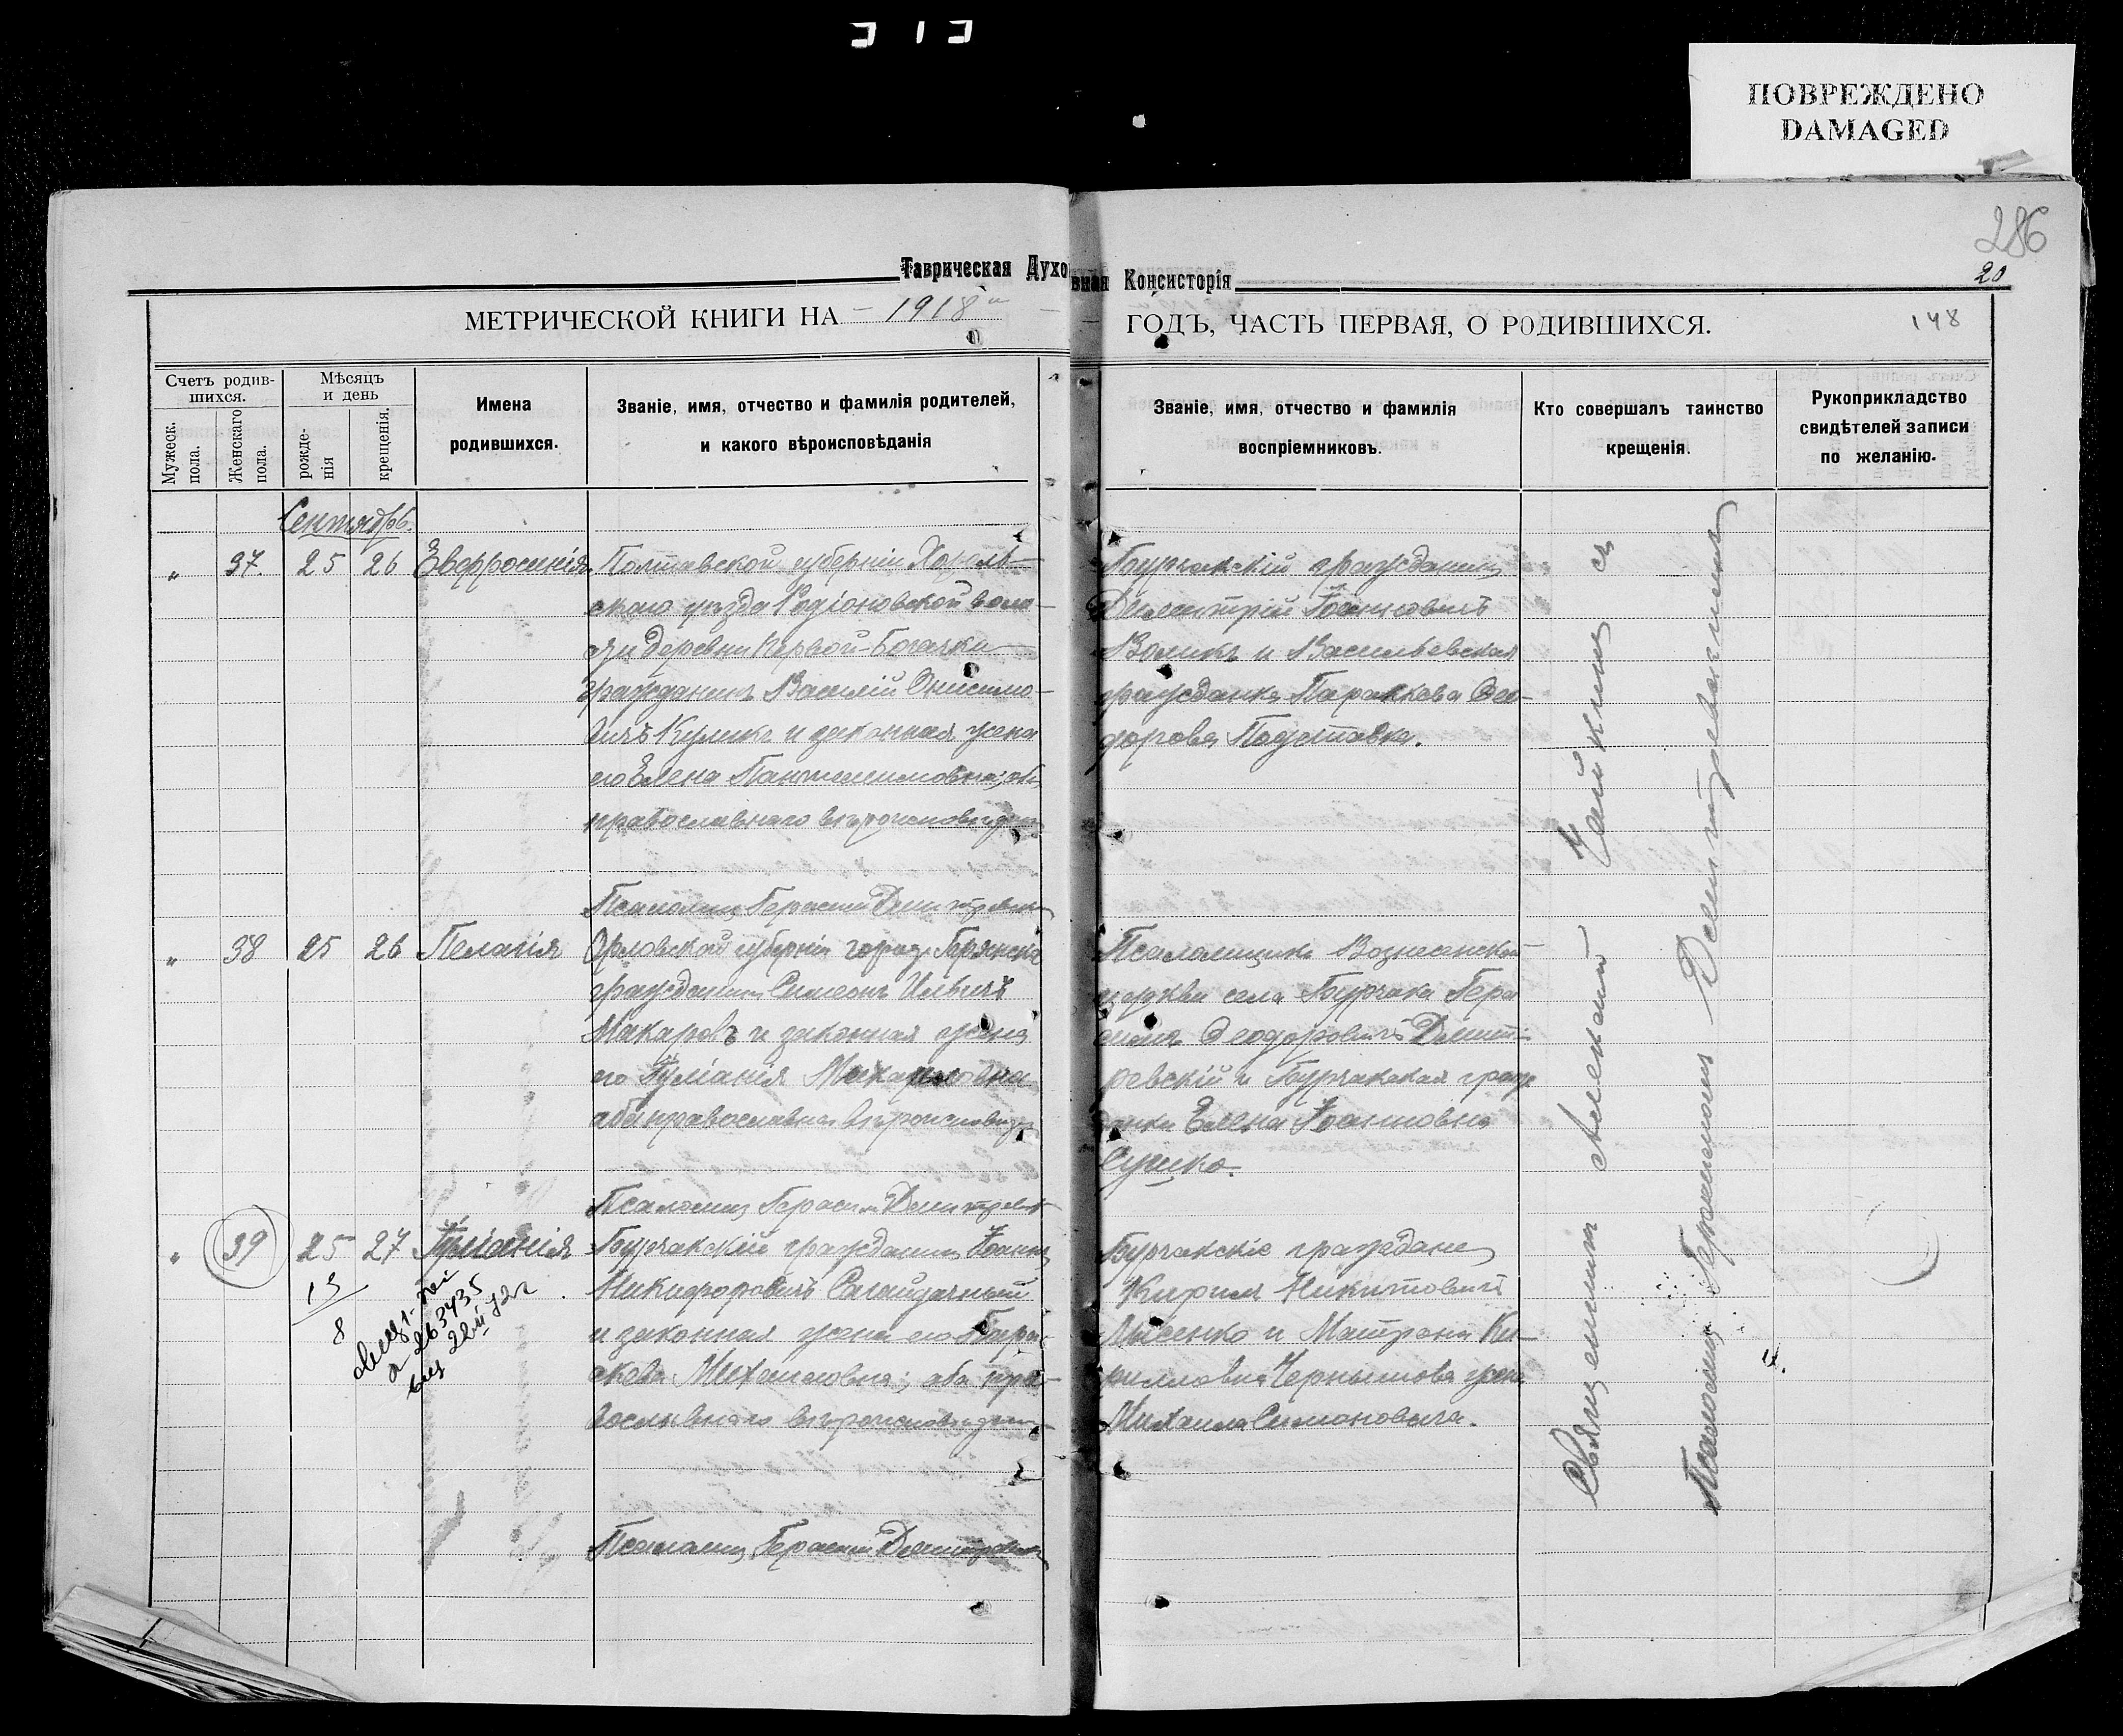 ПОВРЕЖДЕНО
DAMAGED
286
20
Таврическая Духовная Консисторія
МЕТРИЧЕСКОЙ КНИГИ НА 1918 ГОДЪ, ЧАСТЬ ПЕРВАЯ, О РОДИВШИХСЯ.
148
Счетъ родив-
шихся.
Мужеск. пола.
Женскаго пола.
Мѣсяцъ
и день
рожде-
нія
крещенія.
Имена
родившихся.
Званіе, имя, отчество и фамилія родителей,
и какого вѣроисповѣданія
Званіе, имя, отчество и фамилія
воспріемниковъ.
Кто совершалъ таинство
крещенія.
Рукоприкладство
свидѣтелей записи
по желанію.
Сентябрь
" 37. 25 26 Евфросинія
Полтавской губерніи Хороль-
скаго уѣзда Родіоновской воло-
сти деревни Первой-Богачки
гражданинъ Василій Онисимо-
вичъ Куликъ и законная жена
его Елена Пантелеимовна; оба
православнаго вѣроисповѣдан.
Псаломщ Герасим Дмитревск
Бурчакскій гражданинъ
Димитрій Іоанновичъ
Воликъ и Васильевская
гражданка Параскева Ѳео-
дорова Подставка.
" 38 25 26 Пелагія
Орловской губерніи город. Брянска
гражданинъ Симеонъ Ильичъ
Макаровъ и законная жена
его Іуліанія
оба православнаго вѣроисповѣдан
Псаломщ Герасим Дмитревск
Псаломщикъ Вознесенской
церкви села Бурчака Гера
симъ Ѳеодоровичъ Димит-
ревскій и Бурчакская граж
данка Елена Іоанновна
Сушко.
" 39 25 27 Іуліанія
13
8
263435
Бурчакскій гражданинъ Іоаннъ
Никифоровичъ Сагайдачный
и законная жена его Пара-
скева Михаиловна; оба пра-
вославнаго вѣроисповѣдан
Псаломщ Герасим Дмитревск
Бурчакскіе граждане
Кирилъ Никитовичъ
Лысенко и Матрона Ки-
рилловна Чернышова жена
Михаила Симоновича.
Священникъ Алексій Чайкинъ съ
Псаломщ Герасимомъ Димитревскимъ